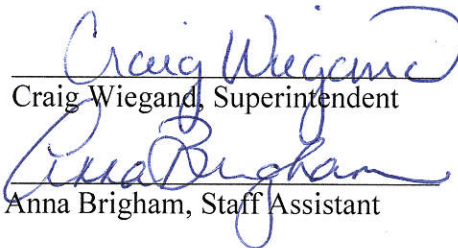 Craig Wiegand
Craig Wiegand, Superintendent
Anna Brigham
Anna Brigham, Staff Assistant